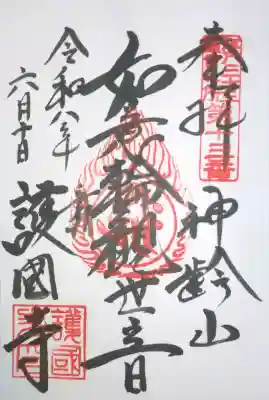 奉拝
第十三番
神齢山
如意輪観世音
令和八年
六月十日
護國寺